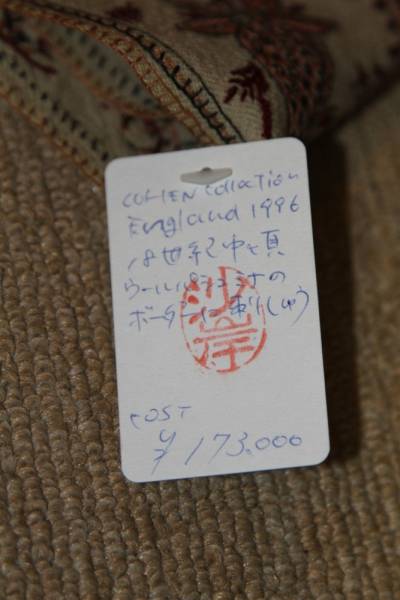 COHEN collection
England 1996
18世紀中頃
ウールパシュミナの
ボーダーに刺しゅう
COST
¥173.000